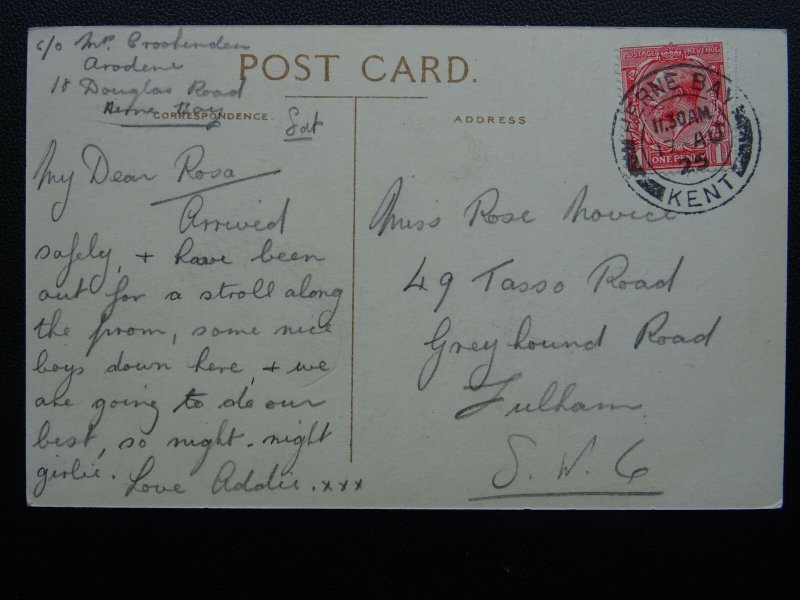 c/o Mrs Crothenden
Arodene
18 Douglas Road
Herne Bay
POST CARD.
CORRESPONDENCE.
ADDRESS
Sat
My Dear Rosa
Arrived
safely, + have been
out for a stroll along
the prom, some nice
boys down here, + we
are going to do our
best, so night-night
girlie.
Love Addie. xxx
POSTAGE REVENUE
ONE PENNY
HERNE BAY
11.30AM
AU
25
KENT
Miss Rose Novice
49 Tasso Road
Greyhound Road
Fulham
S.W.6